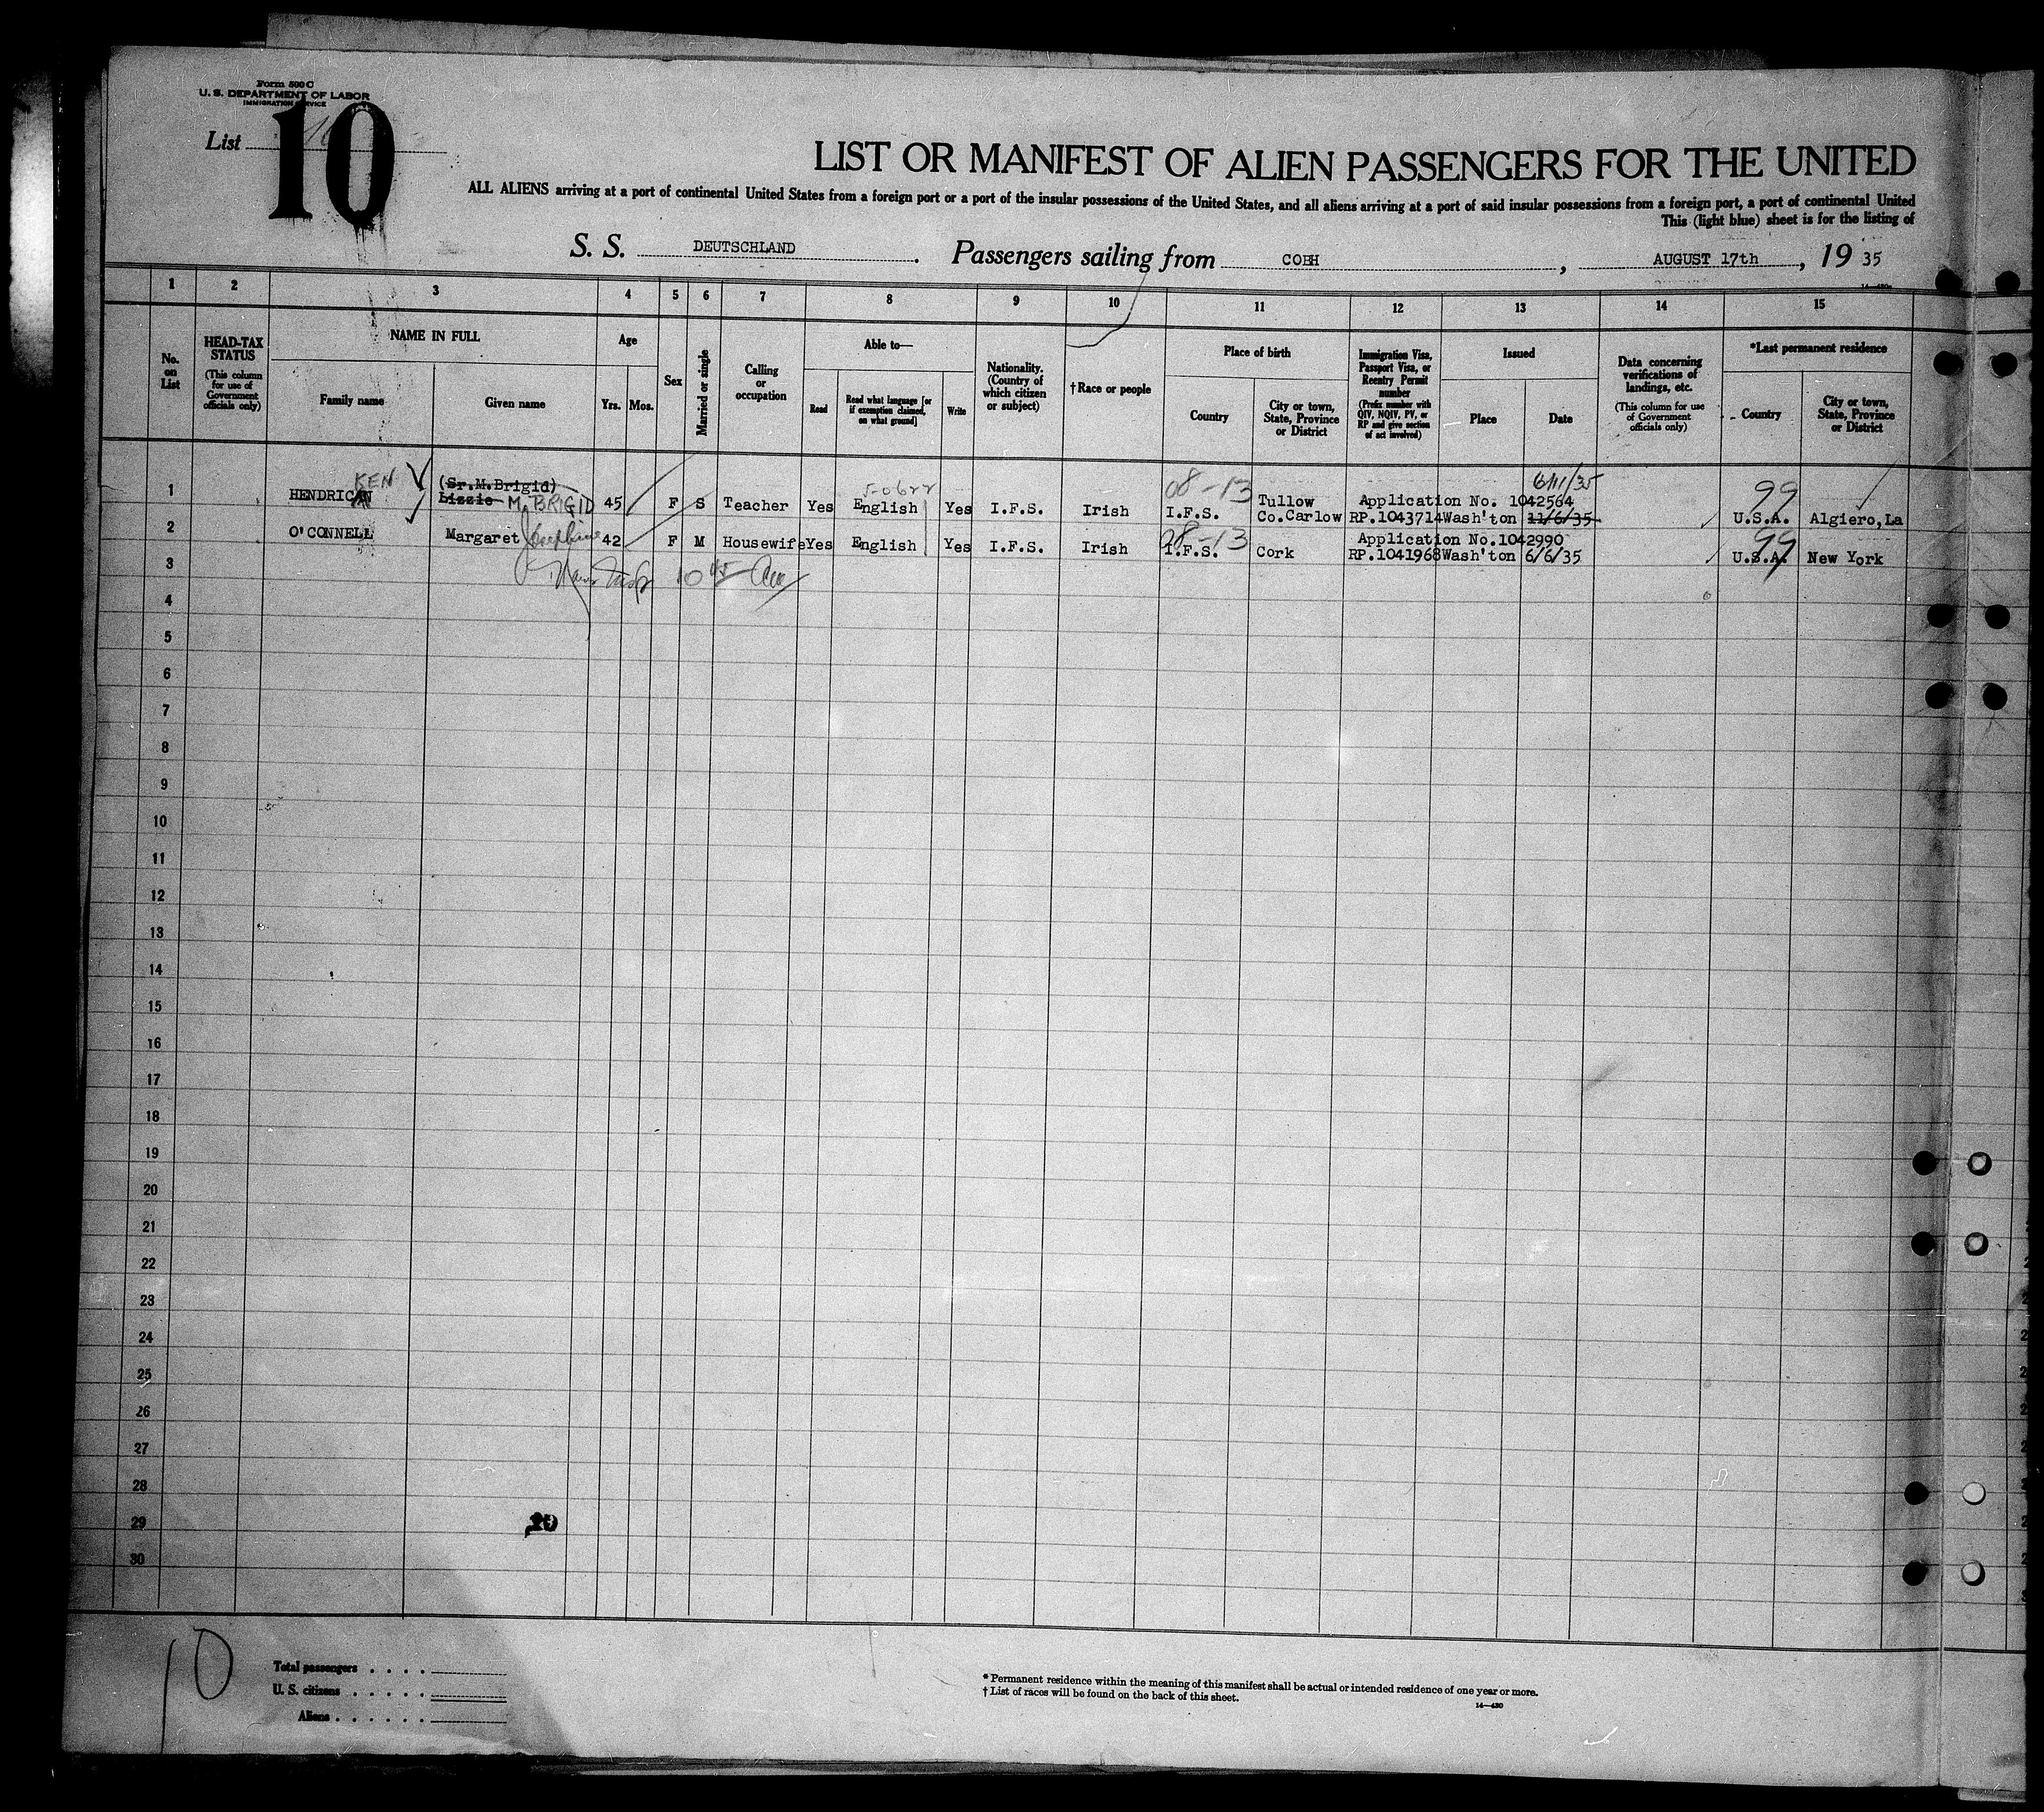 Form 500 C
U. S. DEPARTMENT OF LABOR
IMMIGRATION SERVICE
List 10
10
LIST OR MANIFEST OF ALIEN PASSENGERS FOR THE UNITED
ALL ALIENS arriving at a port of continental United States from a foreign port or a port of the insular possessions of the United States, and all aliens arriving at a port of said insular possessions from a foreign port, a port of continental United
This (light blue) sheet is for the listing of
S. S. DEUTSCHLAND. Passengers sailing from COBH, AUGUST 17th, 19 35
1 2 3 4 5 6 7 8 9 10 11 12 13 14 15
No. on List
HEAD-TAX STATUS (This column for use of Government officials only)
NAME IN FULL
Family name
Given name
Age
Yrs. Mos.
Sex
Married or single
Calling or occupation
Able to—
Read
Read what language [or if exemption claimed, on what ground]
Write
Nationality. (Country of which citizen or subject)
† Race or people
Place of birth
Country
City or town, State, Province or District
Immigration Visa, Passport Visa, or Reentry Permit number (Prefix number with QIV, NQIV, PV, or RP and give section of act involved)
Issued
Place
Date
Data concerning verifications of landings, etc. (This column for use of Government officials only)
*Last permanent residence
Country
City or town, State, Province or District
KEN (Sr.M.Brigid) 5-0622 08-13 6/11/35 99
1 HENDRICAN Lizzie M. BRIGID 45 F S Teacher Yes English Yes I.F.S. Irish I.F.S. Tullow Co.Carlow Application No. 1042564 RP.1043714 Wash'ton 11/6/35 U.S.A. Algiero,La
08-13 99
2 O'CONNELL Margaret Josephine 42 F M Housewife Yes English Yes I.F.S. Irish I.F.S. Cork Application No.1042990 RP.1041968 Wash'ton 6/6/35 U.S.A. New York
3
4
5
6
7
8
9
10
11
12
13
14
15
16
17
18
19
20
21
22
23
24
25
26
27
28
29
30
10
Total passengers
U. S. citizens
Aliens
* Permanent residence within the meaning of this manifest shall be actual or intended residence of one year or more.
† List of races will be found on the back of this sheet.
14—430